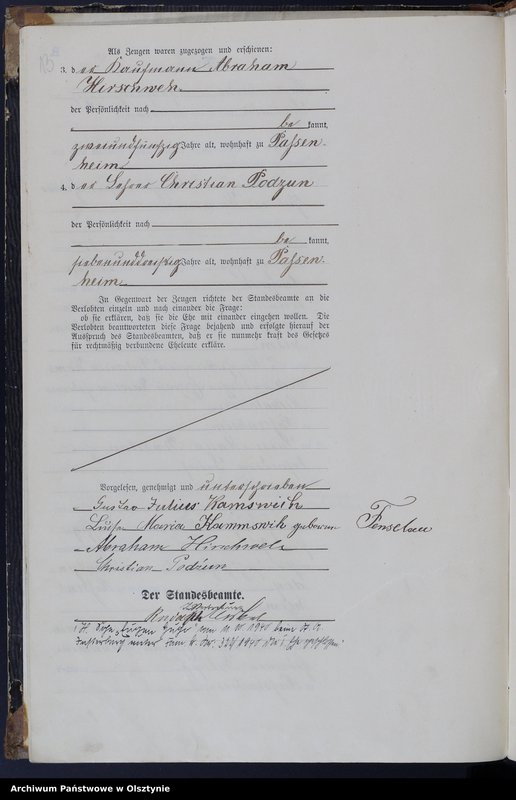 Als Zeugen waren zugezogen und erschienen:
3. der Kaufmann Abraham
Hirschweh
der Persönlichkeit nach
be kannt,
zweiundfünfzig Jahre alt, wohnhaft zu Passen-
heim
4. der Lehrer Christian Podzun
der Persönlichkeit nach
be kannt,
siebenunddreißig Jahre alt, wohnhaft zu Passen-
heim
In Gegenwart der Zeugen richtete der Standesbeamte an die
Verlobten einzeln und nach einander die Frage:
ob sie erklären, daß sie die Ehe mit einander eingehen wollen. Die
Verlobten beantworteten diese Frage bejahend und erfolgte hierauf der
Ausspruch des Standesbeamten, daß er sie nunmehr kraft des Gesetzes
für rechtmäßig verbundene Eheleute erkläre.
Vorgelesen, genehmigt und unterschrieben
Gustav Julius Kamswich
Luise Maria Kammswich geborene Fenselau
Abraham Hirschweh
Christian Podzun
Der Standesbeamte.
In Vertretung
Archiwum Państwowe w Olsztynie